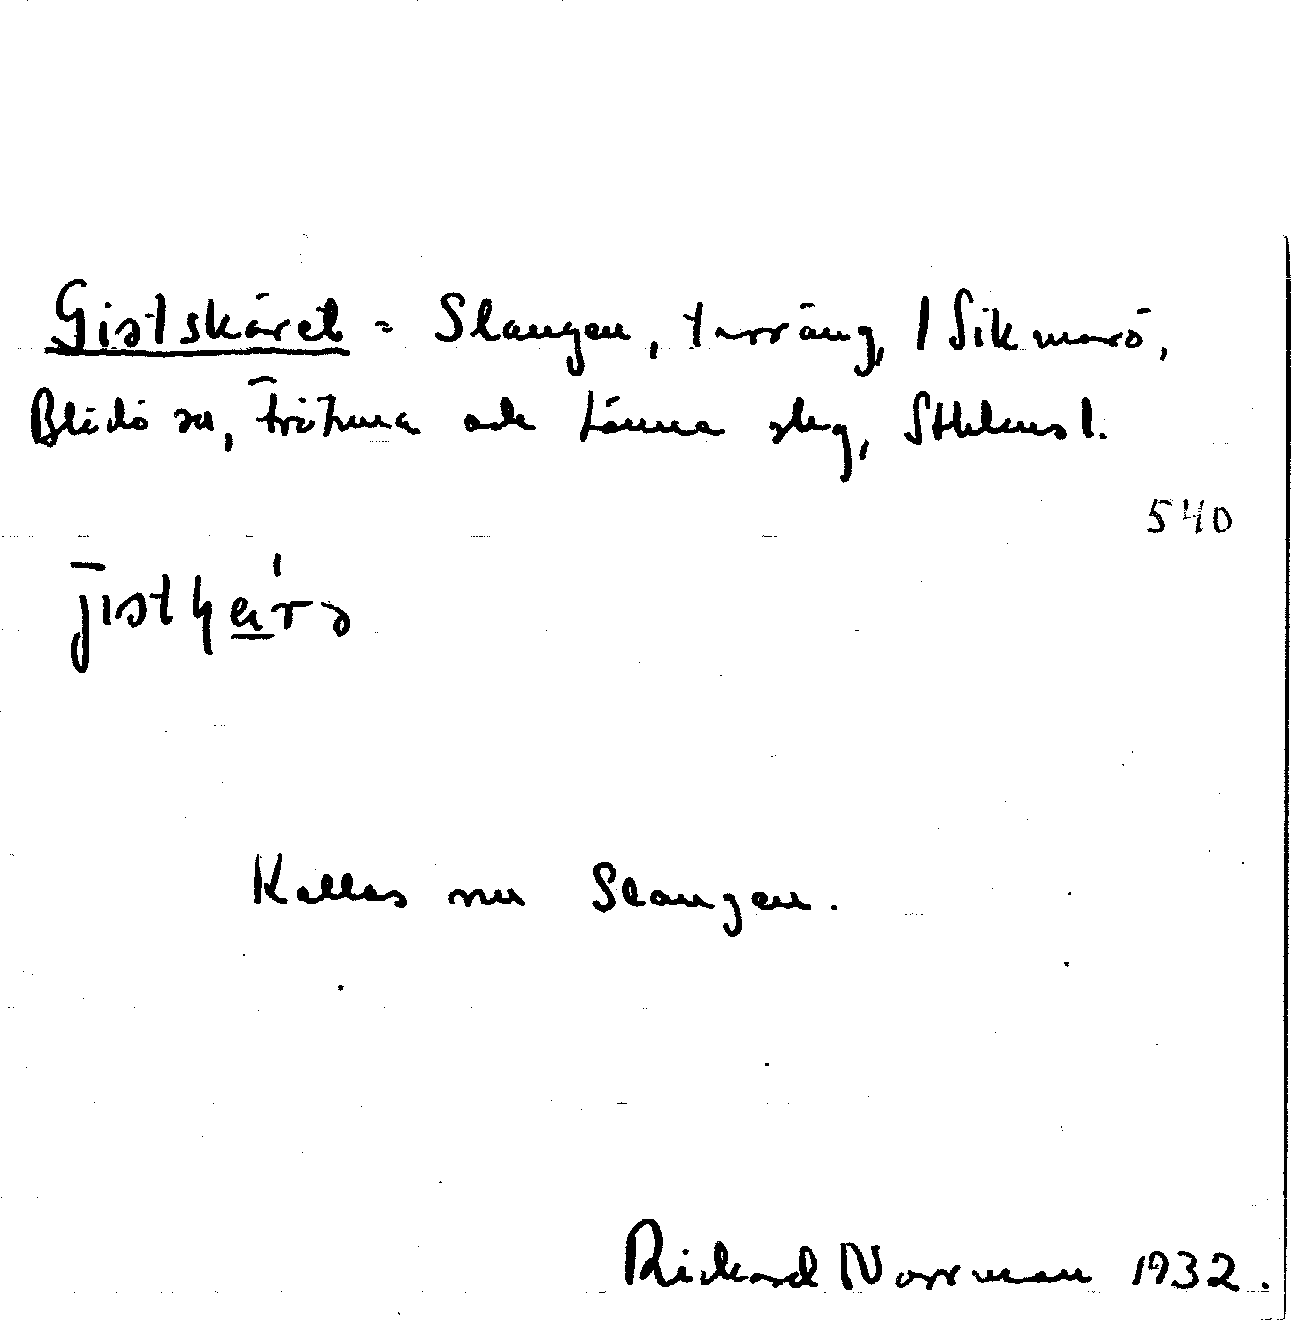 Gistskäret = Slangen, terräng, / Sikmarö,
Blidö sn, Frötuna och Länna skg, Sthlms l.
540
Kallas nu Slangen.
Rickard Norrman 1932.